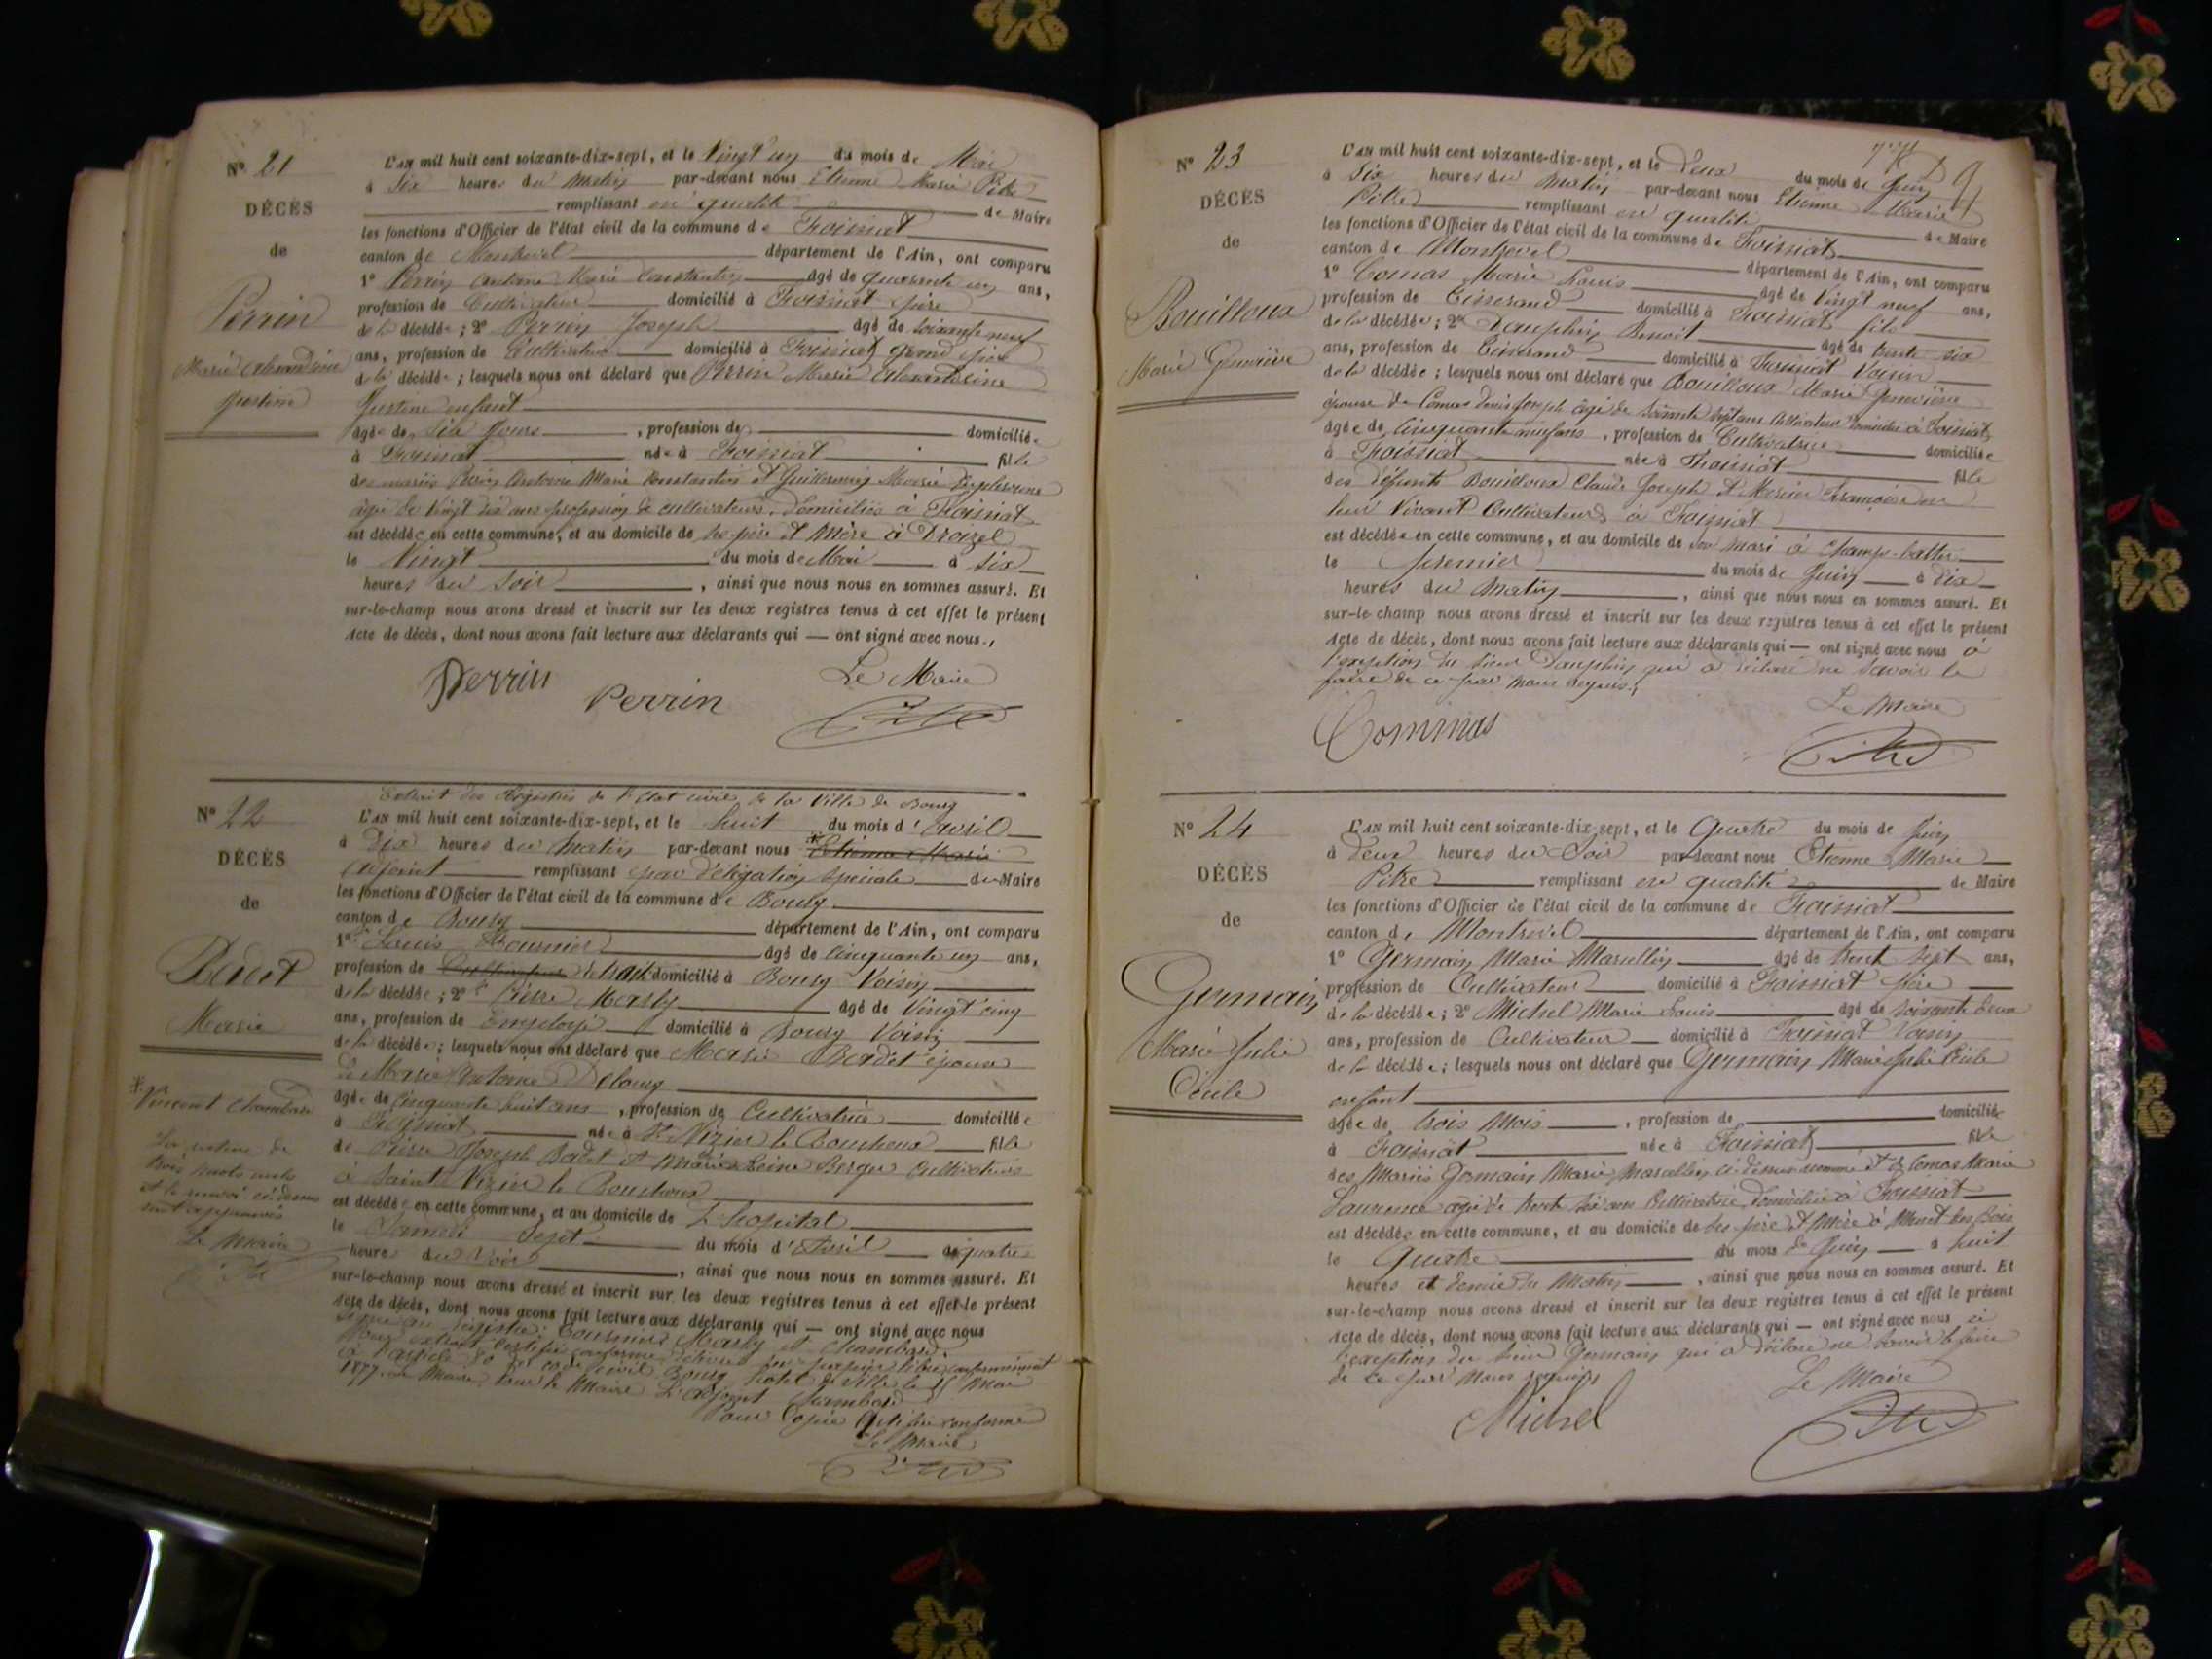 N° 21
DÉCÈS
de
Perrin
Marie Alexandrine
Justine
L'AN mil huit cent soixante-dix-sept, et le Vingt un du mois de Mai
à Six heures du Matin par-devant nous Etienne Marie Pitre
remplissant en qualité de Maire
les fonctions d'Officier de l'état civil de la commune de Foissiat
canton de Montrevel département de l'Ain, ont comparu
1° Perrin Antoine Marie Constantin âgé de quarante un ans,
profession de Cultivateur domicilié à Foissiat père
de la décédée ; 2° Perrin Joseph âgé de soixante neuf
ans, profession de Cultivateur domicilié à Foissiat grand père
de la décédée ; lesquels nous ont déclaré que Perrin Marie Alexandrine
Justine enfant
âgée de six jours , profession de domiciliée
à Foissiat née à Foissiat fille
des mariés Perrin Antoine Marie Constantin et Guillermin Marie
âgée de Vingt six ans profession de cultivateurs, domiciliés à Foissiat
est décédée en cette commune, et au domicile de ses père et mère à Droizel
le Vingt du mois de Mai à six
heures du Soir , ainsi que nous nous en sommes assuré. Et
sur-le-champ nous avons dressé et inscrit sur les deux registres tenus à cet effet le présent
Acte de décès, dont nous avons fait lecture aux déclarants qui — ont signé avec nous.
Perrin Perrin Le Maire
Pitre
N° 22
DÉCÈS
de
Badet
Marie
* Vincent Chambard
La rature de
trois mots nuls
et le renvoi ci-dessus
sont approuvés
Le Maire
Pitre
Extrait des Registres de l'Etat civil de la Ville de Bourg
L'AN mil huit cent soixante-dix-sept, et le huit du mois d'Avril
à Dix heures du Matin par-devant nous * Etienne Marie
adjoint remplissant par délégation spéciale du Maire
les fonctions d'Officier de l'état civil de la commune de Bourg
canton de Bourg département de l'Ain, ont comparu
1° Louis Tournier âgé de Cinquante un ans,
profession de Cultivateur domicilié à Bourg Voisin
de la décédée ; 2° Pierre Marly âgé de Vingt cinq
ans, profession de Employé domicilié à Bourg Voisin
de la décédée ; lesquels nous ont déclaré que Marie Badet épouse
de Marie Antoine Deloug
âgée de Cinquante huit ans , profession de Cultivatrice domiciliée
à Foissiat née à St Nizier le Bouchoux fille
de Pierre Joseph Badet et Marie Reine Berger Cultivateurs
à Saint Nizier le Bouchoux
est décédée en cette commune, et au domicile de L'hopital
le Samedi Sept du mois d'Avril à quatre
heures du Soir , ainsi que nous nous en sommes assuré. Et
sur-le-champ nous avons dressé et inscrit sur les deux registres tenus à cet effet le présent
Acte de décès, dont nous avons fait lecture aux déclarants qui — ont signé avec nous
Signé au registre : Tournier Marly et Chambard
Pour extrait certifié conforme délivré sur papier libre conformément
à l'article 80 du code civil Bourg hotel de Ville le 15 Mai
1877. Le Maire, Pour le Maire L'adjoint Chambard
Pour Copie Certifiée conforme
Le Maire
Pitre
N° 23
DÉCÈS
de
Bouilloux
Marie Geneviève
L'AN mil huit cent soixante-dix-sept, et le Deux du mois de Juin
à Six heures du Matin par-devant nous Etienne Marie
Pitre remplissant en qualité de Maire
les fonctions d'Officier de l'état civil de la commune de Foissiat
canton de Montrevel département de l'Ain, ont comparu
1° Comas Marie Louis âgé de Vingt neuf ans,
profession de Tisserand domicilié à Foissiat fils
de la décédée ; 2° Dauphin Benoit âgé de trente six
ans, profession de Tisserand domicilié à Foissiat Voisin
de la décédée ; lesquels nous ont déclaré que Bouilloux Marie Geneviève
épouse de Comas Denis Joseph âgé de soixante sept ans Cultivateur domicilié à Foissiat
âgée de Cinquante neuf ans , profession de Cultivatrice domiciliée
à Foissiat née à Foissiat fille
des défunts Bouilloux Claude Joseph et Mercier Françoise de
leur Vivant Cultivateurs à Foissiat
est décédée en cette commune, et au domicile de son mari à Champ-battu
le premier du mois de Juin à Dix
heures du Matin , ainsi que nous nous en sommes assuré. Et
sur-le-champ nous avons dressé et inscrit sur les deux registres tenus à cet effet le présent
Acte de décès, dont nous avons fait lecture aux déclarants qui — ont signé avec nous à
l'exception du sieur Dauphin qui a déclaré ne savoir le
faire de ce par nous requis.
Le Maire
Commas Pitre
N° 24
DÉCÈS
de
Germain
Marie Julie
Cécile
L'AN mil huit cent soixante-dix-sept, et le Quatre du mois de Juin
à Deux heures du Soir par-devant nous Etienne Marie
Pitre remplissant en qualité de Maire
les fonctions d'Officier de l'état civil de la commune de Foissiat
canton de Montrevel département de l'Ain, ont comparu
1° Germain Marie Marcellin âgé de trente sept ans,
profession de Cultivateur domicilié à Foissiat père
de la décédée ; 2° Michel Marie Louis âgé de soixante deux
ans, profession de Cultivateur domicilié à Foissiat Voisin
de la décédée ; lesquels nous ont déclaré que Germain Marie Julie Cécile
enfant
âgée de trois Mois , profession de domiciliée
à Foissiat née à Foissiat fille
des Mariés Germain Marie Marcellin ci dessus nommé et de Comas Marie
Laurence âgée de trente six ans Cultivatrice domiciliée à Foissiat
est décédée en cette commune, et au domicile de ses père et mère à Mont les Bois
le Quatre du mois de Juin à huit
heures et demie du Matin , ainsi que nous nous en sommes assuré. Et
sur-le-champ nous avons dressé et inscrit sur les deux registres tenus à cet effet le présent
Acte de décès, dont nous avons fait lecture aux déclarants qui — ont signé avec nous à
l'exception du sieur Germain qui a déclaré ne savoir le faire
de ce par Nous requis
Le Maire
Michel Pitre